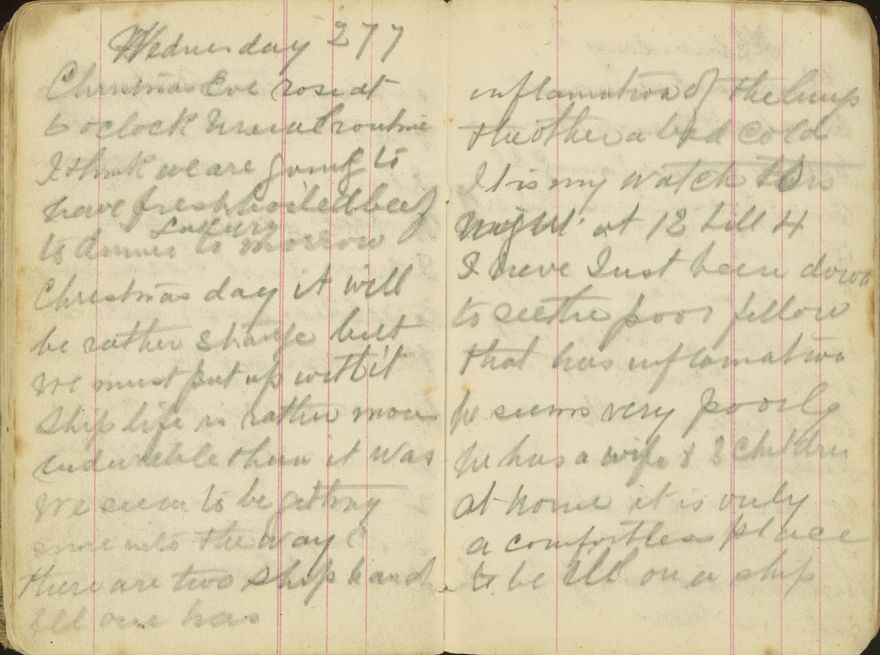 Wednesday 277
Christmas Eve rose at
6 oclock usual routine
I think we are going to
have fresh boiled beef
Luxury
to dinner to morrow
Christmas day it will
be rather strange but
we must put up with it
Ship life is rather more
endurable than it was
we seem to be getting
more into the way
there are two ship hands
ill one has
inflamation of the lungs
the other a bad cold
It is my watch to
night at 12 till 4
I have Just been down
to see the poor fellow
that has inflamation
he seems very poorly
he has a wife & 3 children
at home it is only
a comfortless place
to be ill on a ship